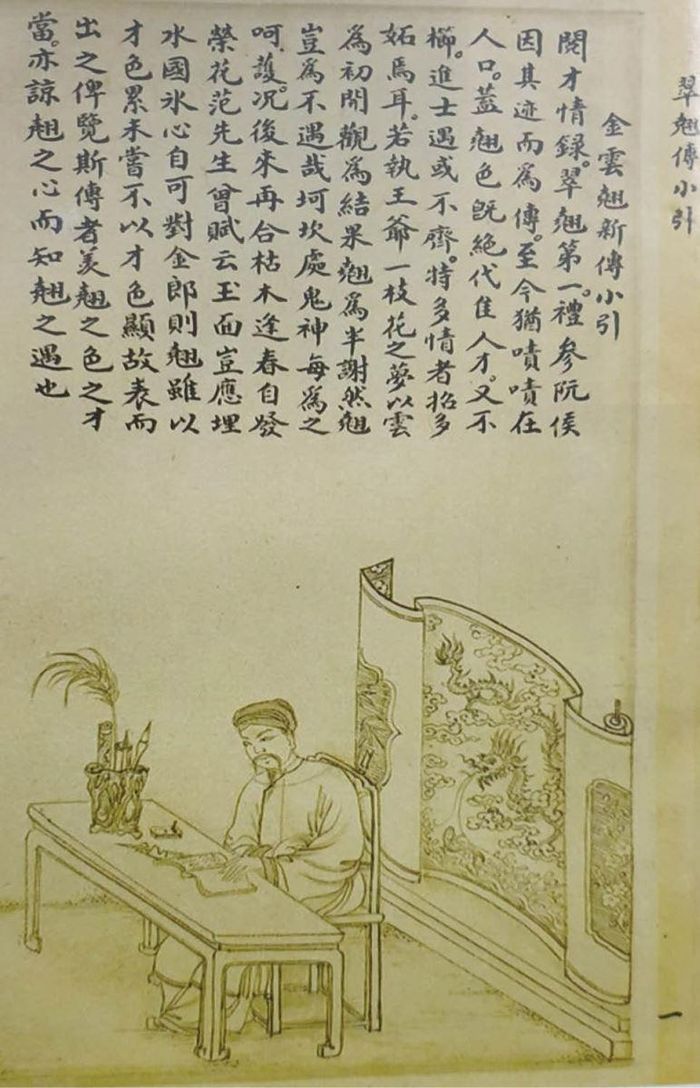 翠翹傳小引
金雲翹新傳小引
閱才情錄。翠翹第一。禮參阮侯
因其迹而為傳。至今猶嘖嘖在
人口。蓋翹色既絕代佳人才。又不
櫛。進士遇或不齊。特多情者招多
妬焉耳。若執王爺一枝花之夢以雲
為初開觀為結果翹為半謝然翹
豈為不遇哉坷坎處鬼神每為之
呵護。况後來再合枯木逢春自發
榮花范先生曾賦云玉面豈應埋
水國氷心自可對金郎則翹雖以
才色累未嘗不以才色顯故表而
出之俾覽斯傳者羙翹之色之才
當。亦諒翹之心而知翹之遇也
一